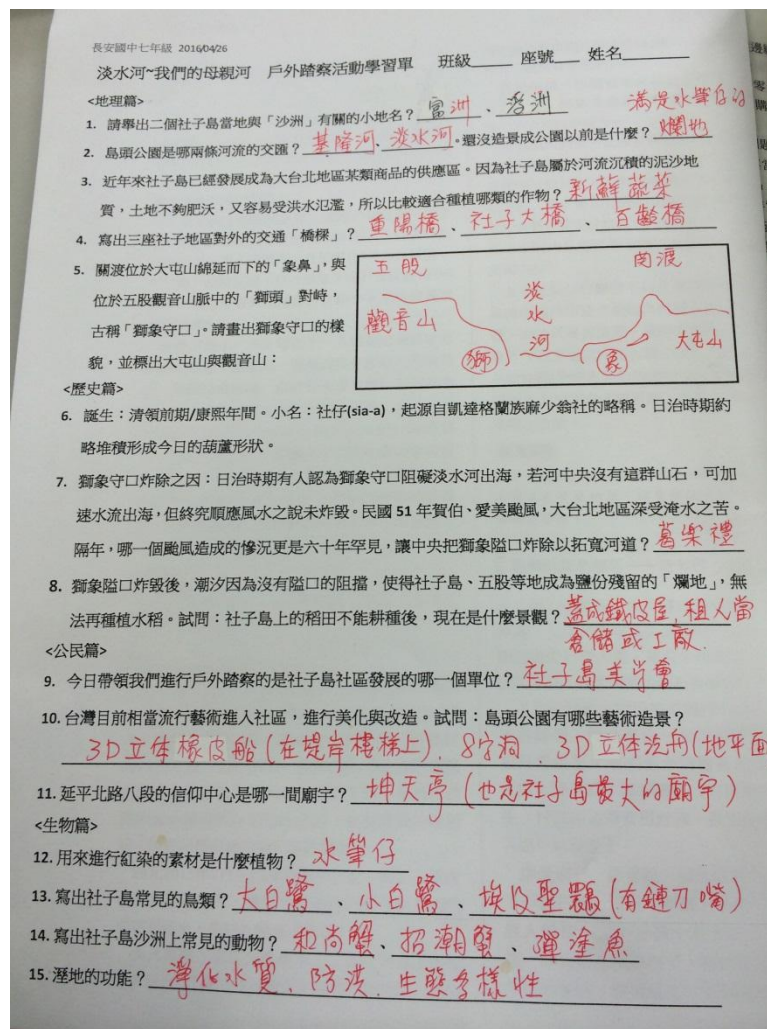 長安國中七年級 2016/04/26
淡水河~我們的母親河 戶外踏察活動學習單 班級____ 座號___ 姓名________
<地理篇>
1. 請舉出二個社子島當地與「沙洲」有關的小地名? 富洲、浮洲 滿是水筆仔的
2. 島頭公園是哪兩條河流的交匯? 基隆河、淡水河。還沒造景成公園以前是什麼? 爛地
3. 近年來社子島已經發展成為大台北地區某類商品的供應區。因為社子島屬於河流沉積的泥沙地
質,土地不夠肥沃,又容易受洪水氾濫,所以比較適合種植哪類的作物? 新鮮蔬菜
4. 寫出三座社子地區對外的交通「橋樑」? 重陽橋、社子大橋、百齡橋
5. 關渡位於大屯山綿延而下的「象鼻」,與
位於五股觀音山脈中的「獅頭」對峙,
古稱「獅象守口」。請畫出獅象守口的樣
貌,並標出大屯山與觀音山:
五股 關渡
觀音山 淡水河 大屯山
獅 象
<歷史篇>
6. 誕生:清領前期/康熙年間。小名:社仔(sia-a),起源自凱達格蘭族麻少翁社的略稱。日治時期約
略堆積形成今日的葫蘆形狀。
7. 獅象守口炸除之因:日治時期有人認為獅象守口阻礙淡水河出海,若河中央沒有這群山石,可加
速水流出海,但終究順應風水之說未炸毀。民國 51 年賀伯、愛美颱風,大台北地區深受淹水之苦。
隔年,哪一個颱風造成的慘況更是六十年罕見,讓中央把獅象隘口炸除以拓寬河道? 葛樂禮
8. 獅象隘口炸毀後,潮汐因為沒有隘口的阻擋,使得社子島、五股等地成為鹽份殘留的「爛地」,無
法再種植水稻。試問:社子島上的稻田不能耕種後,現在是什麼景觀? 蓋成鐵皮屋,租人當
倉儲或工廠.
<公民篇>
9. 今日帶領我們進行戶外踏察的是社子島社區發展的哪一個單位? 社子島美学會
10. 台灣目前相當流行藝術進入社區,進行美化與改造。試問:島頭公園有哪些藝術造景?
3D立体橡皮船(在堤岸樓梯上)、8字洞、3D立体泛舟(地平面
11. 延平北路八段的信仰中心是哪一間廟宇? 坤天亭(也是社子島最大的廟宇)
<生物篇>
12. 用來進行紅染的素材是什麼植物? 水筆仔
13. 寫出社子島常見的鳥類? 大白鷺、小白鷺、埃及聖䴉(有鏈刀嘴)
14. 寫出社子島沙洲上常見的動物? 和尚蟹、招潮蟹、彈塗魚
15. 溼地的功能? 淨化水質、防洪、生態多樣性